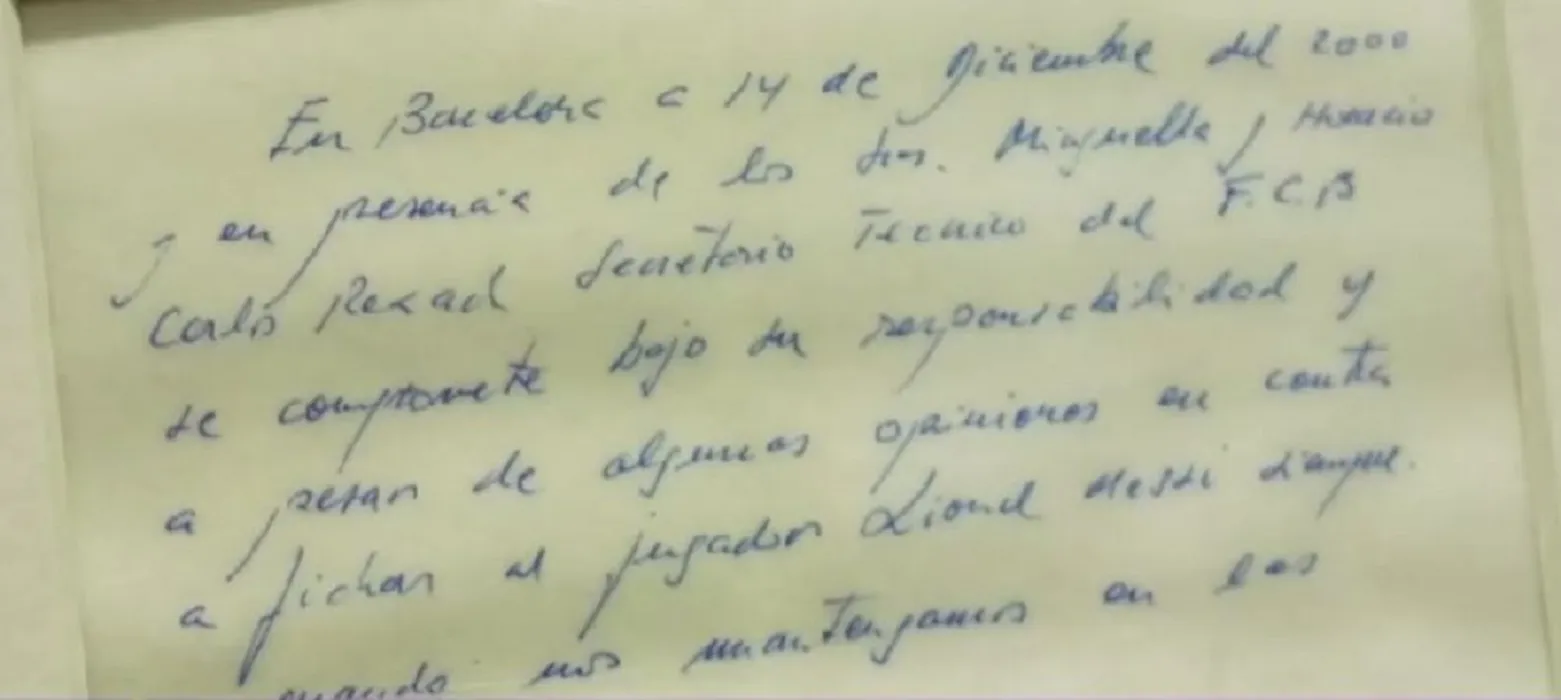 En Barcelona a 14 de Diciembre del 2000
y en presencia de los Srs. Minguella y Horacio
Carlos Rexach Secretario Tecnico del F.C.B
se compromete bajo su responsabilidad y
a pesar de algunas opiniones en contra
a fichar al jugador Lionel Messi siempre
cuando nos mantengamos en las